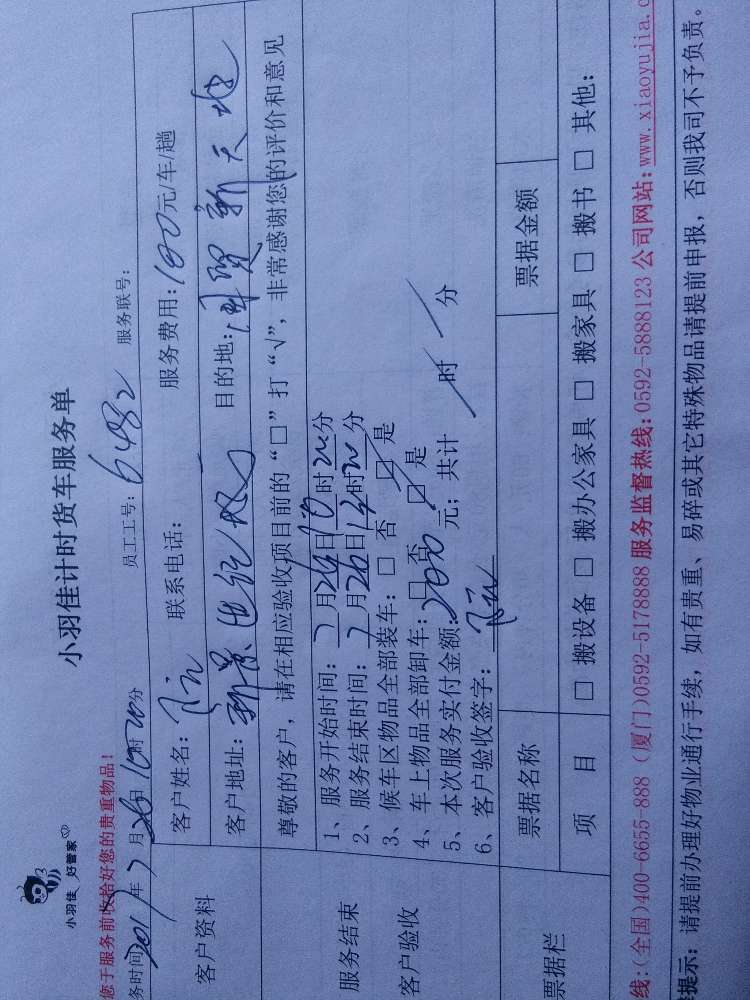 小羽佳 好管家
小羽佳计时货车服务单
您于服务前收拾好您的贵重物品!
务时间 201 年 7 月 26 日 10 时 20 分 员工工号: 6482 服务联号:
客户资料
客户姓名: 联系电话: 服务费用: 180 元/车/趟
客户地址: 新景世纪城 目的地: 国贸新天地
尊敬的客户,请在相应验收项目前的“□”打“√”,非常感谢您的评价和意见
服务结束
客户验收
1、服务开始时间: 7 月 26 日 10 时 20 分
2、服务结束时间: 7 月 26 日 12 时 20 分
3、候车区物品全部装车: □ 否 ☑ 是
4、车上物品全部卸车: □ 否 ☑ 是
5、本次服务实付金额: 200 元; 共计 / 时 / 分
6、客户验收签字:
票据栏
票据名称 票据金额
项 目 □ 搬设备 □ 搬办公家具 □ 搬家具 □ 搬书 □ 其他:
线:(全国)400-6655-888 (厦门)0592-5178888 服务监督热线: 0592-5888123 公司网站: www.xiaoyujia.c
提示: 请提前办理好物业通行手续,如有贵重、易碎或其它特殊物品请提前申报,否则我司不予负责。